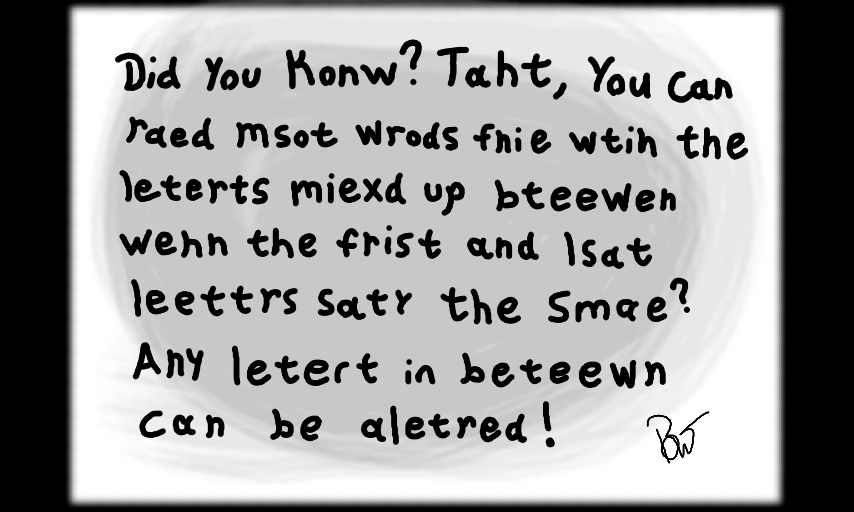 Did You Konw? Taht, You Can
raed msot wrods fnie wtih the
leterts miexd up bteewen
wehn the frist and lsat
leettrs saty the Smae?
Any letert in beteewn
can be aletred!
BW